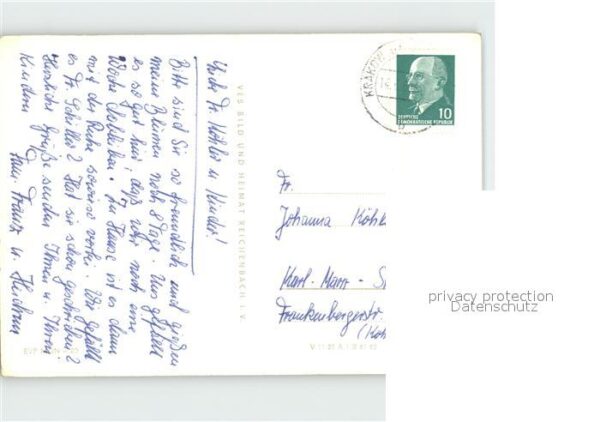 Liebe Fr. Köhler u. Kinder!
Bitte sind Sie so freundlich und gießen
meine Blumen noch 8 Tage. Uns gefällt
es so gut hier, daß wir noch eine
Woche bleiben. Zu Hause ist es dann
mit der Ruhe sowieso vorbei. Wie gefällt
es Fr. Schiller? Hat sie schon geschrieben?
Herzliche Grüße senden Ihnen u. Ihren
Kindern
Fam. Franz u.
VEB BILD UND HEIMAT REICHENBACH I. V.
KRAKOW
DEUTSCHE
DEMOKRATISCHE REPUBLIK
10
Fr.
Johanna Köhl
Karl-Marx-S
Frankenbergerstr.
privacy protection
Datenschutz